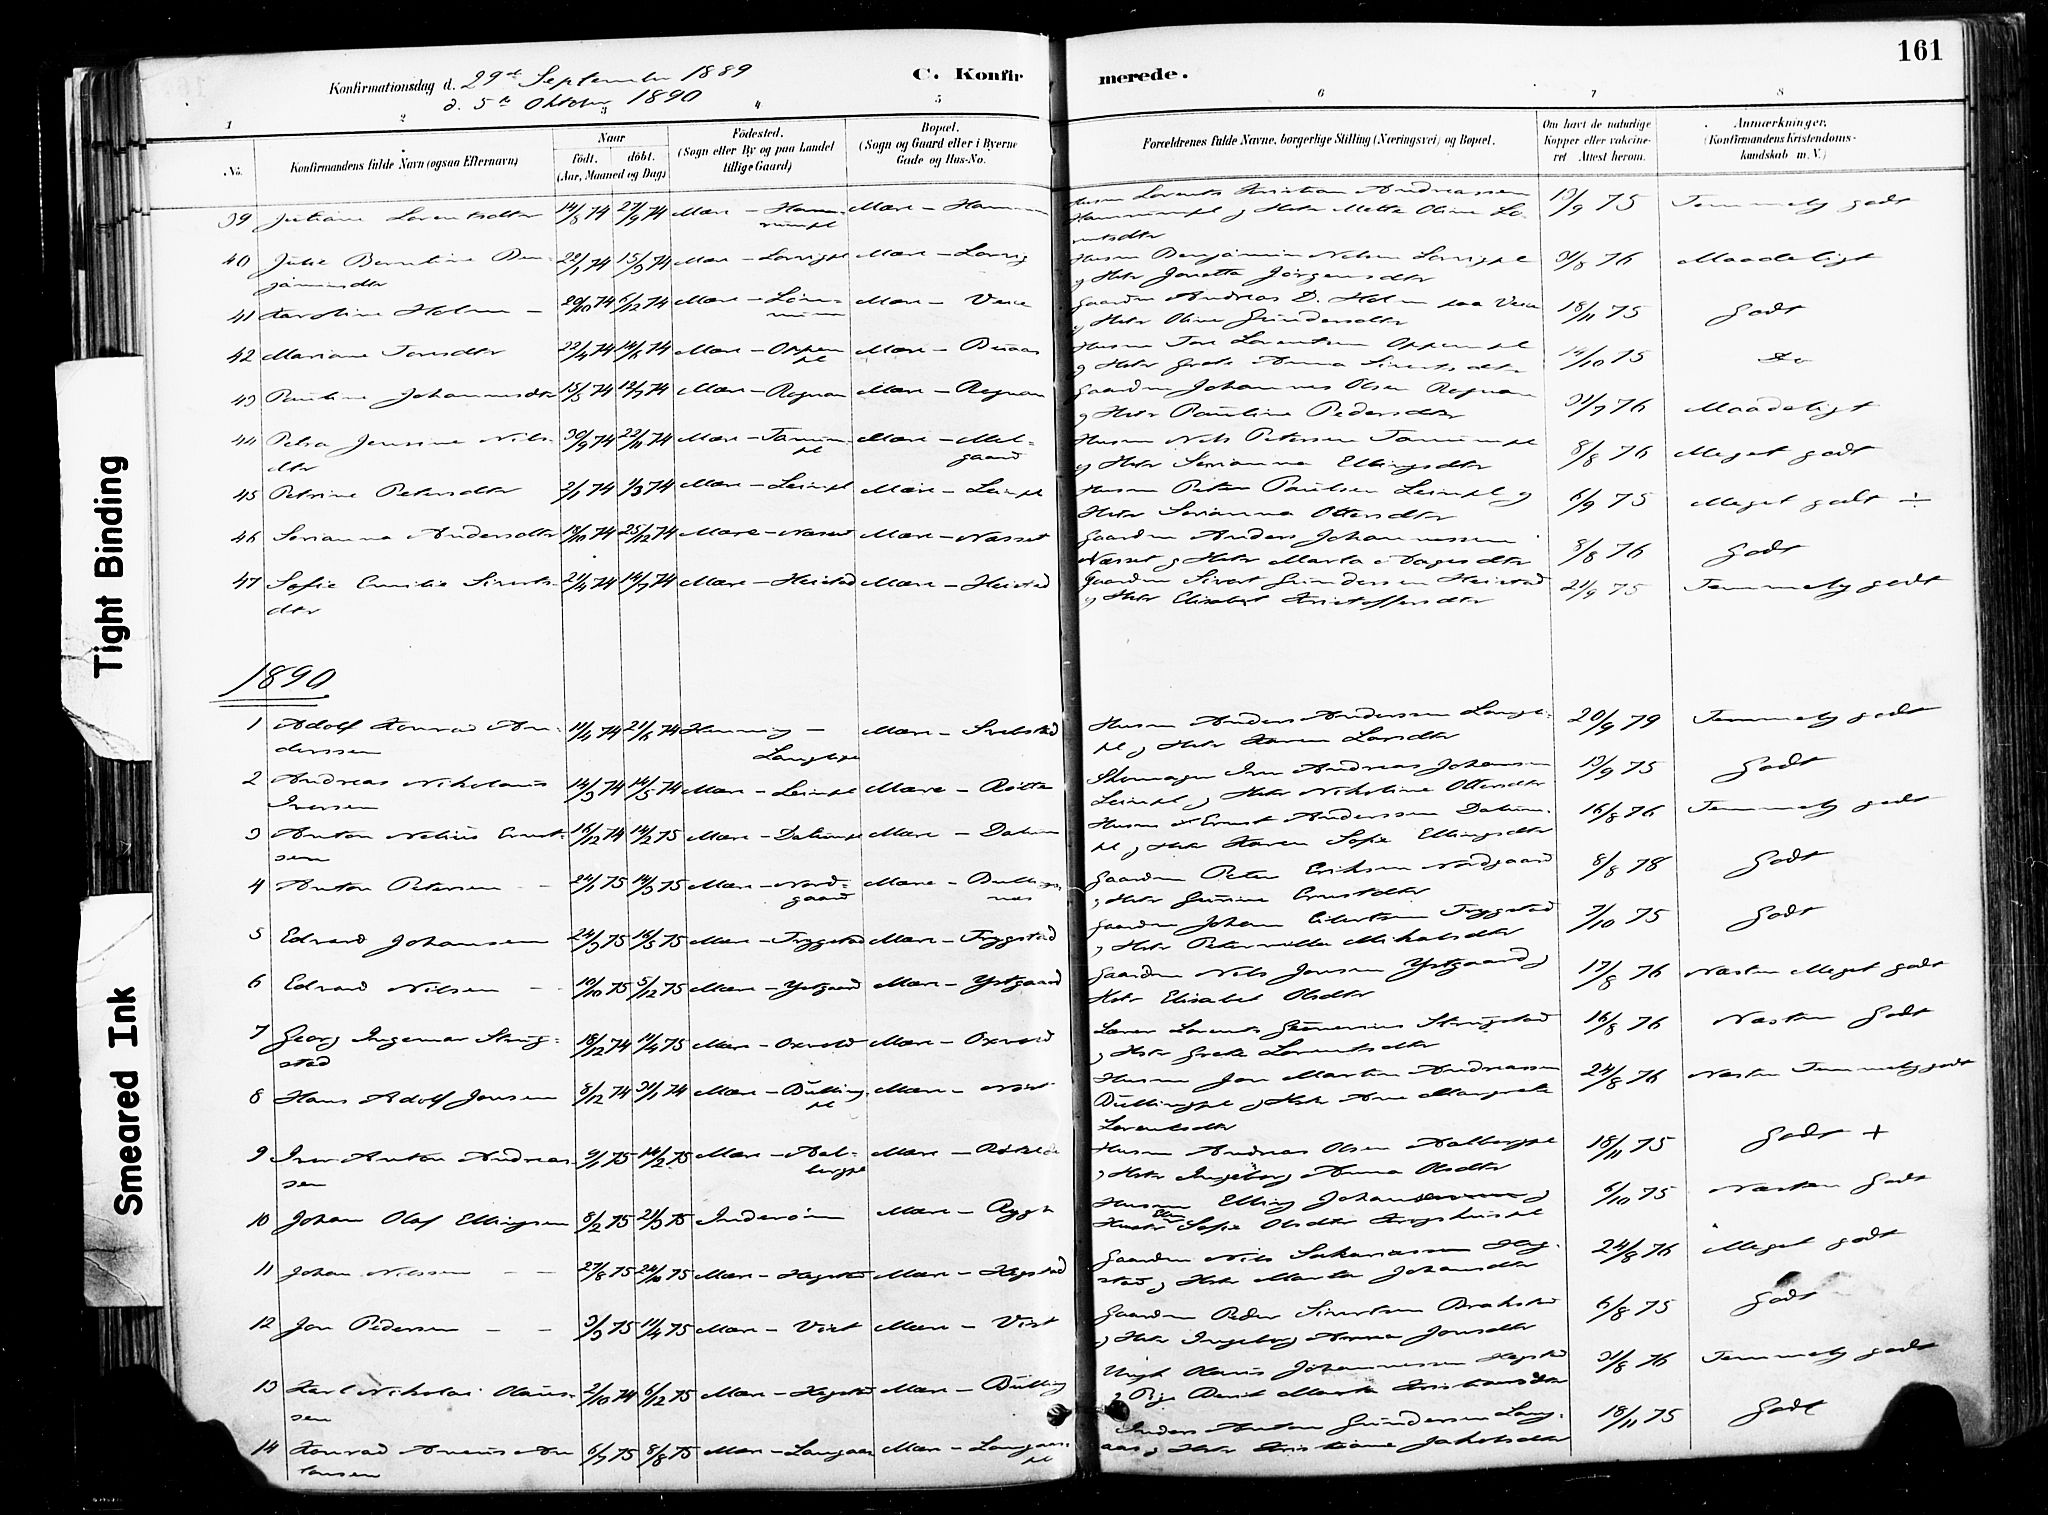 161
Konfirmationsdag d. 29de September 1889
d. 5te Oktober 1890
C. Konfirmerede.
1 2 3 4 5 6 7 8
No. Konfirmandens fulde Navn (ogsaa Efternavn) Naar født. døbt. (Aar, Maaned og Dag) Fødested. (Sogn eller By og paa Landet tillige Gaard) Bopæl. (Sogn og Gaard eller i Byerne Gade og Hus-No. Forældrenes fulde Navne, borgerlige Stilling (Næringsvei) og Bopæl. Om havt de naturlige Kopper eller vaccineret Attest herom. Anmærkninger. (Konfirmandens Kristendomskundskab m. V.)
39 Juliane Lorentsdtr 14/8 74 27/9 74 Mære – Mære – Husm Lorents Kristian Andreassen og Hstr Mette Oline Lorentsdtr 13/9 75 Temmelig godt
40 Julie Berntine Benjaminsdtr 22/1 74 15/3 74 Mære – Mære – Husm Benjamin Nelsen og Hstr Jonetta Jörgensdtr 31/8 76 Maadeligt
41 Karoline Holm – 20/10 74 6/12 74 Mære – Mære – Veie Gaardm Andreas D. Holm paa Veie og Hstr Oline Gundersdtr 18/11 75 Godt
42 Mariane Toresdtr 22/4 74 14/6 74 Mære – Oppem pl Mære – Husm Tore Lorentsen Oppempl og Hstr Grete Anna Sivertsdtr 14/10 75 Do
43 Pauline Johannesdtr 15/5 74 12/7 74 Mære – Rognan Mære – Rognan Gaardm Johannes Olsen Rognan og Hstr Pauline Pedersdtr 31/7 76 Maadeligt
44 Petra Jensine Nilsdtr 30/9 74 22/11 74 Mære – Tanumpl Mære – Melgaard Husm Nils Petersen Tanumpl og Hstr Serianna Ellingsdtr 8/8 76 Meget godt
45 Petrine Petersdtr 2/1 74 1/3 74 Mære – Leinpl Mære – Leinpl Husm Peter Paulsen Leinpl og Hstr Serianna Ottersdtr 6/9 75 Meget godt ÷
46 Serianna Andersdtr 18/10 74 25/12 74 Mære – Næsset Mære – Næsset Gaardm Anders Johannessen Næsset og Hstr Marta Aagesdtr 8/8 76 Godt
47 Sofie Emilie Sivertsdtr 21/4 74 14/7 74 Mære – Heistad Mære – Heistad Gaardm Sivert Gundersen Heistad og Hstr Elisabet Kristoffersdtr 21/9 75 Temmelig godt
1890
1 Adolf Konrad Anderssen 11/4 74 21/6 74 Henning – Mære – Husm Anders Anderssen og Hstr Karen Larsdtr 20/9 79 Temmelig godt
2 Andreas Nikolaus Iversen 14/3 74 14/5 74 Mære – Leinpl Mære – Skomager Iver Andreas Johansen Leinpl og Hstr Nikoline Ottersdtr 13/9 75 Godt
3 Anton Nelius Ernstsen 16/12 74 14/2 75 Mære – Dalumpl Mære – Dalum Husm Ernst Anderssen Dalumpl og Hstr Karen Sofie Ellingsdtr 16/8 76 Temmelig godt
4 Anton Petersen – 24/1 75 14/3 75 Mære – Nordgaard Mære – Gaardm Peter Eriksen Nordgaard og Hstr Gurine Ernstdtr 8/8 78 Godt
5 Edvard Johansen 24/3 75 16/5 75 Mære – Trygstad Mære – Trygstad Gaardm Johan Trygstad og Hstr Peternille Mikalsdtr 7/10 75 Godt
6 Edvard Nilsen – 10/10 75 5/12 75 Mære – Ystgaard Mære – Ystgaard Gaardm Nils Jensen Ystgaard og Hstr Elisabet Olsdtr 17/8 76 Næsten Meget godt
7 Georg Ingemar Strugstad 18/12 74 11/4 75 Mære – Mære – Lærer Lorents Strugstad og Hstr Grete Lorentsdtr 16/8 76 Næsten Godt
8 Hans Adolf Jonsen 8/12 74 31/1 74 Mære – Büllingpl Mære – Husm Jon Martin Andreassen Büllingpl og Hstr Ane Margrete Lorentsdtr 24/8 76 Næsten Temmelig godt
9 Iver Anton Andreassen 9/1 75 14/2 75 Mære – Aalbergpl Mære – Husm Andreas Olsen Aalbergpl og Hstr Ingeborg Anna Olsdtr 18/11 75 Godt +
10 Johan Olaf Ellingsen 8/2 75 21/3 75 Inderøen Mære – Rygg Husm Elling Johansen og Hustr Sofie Olsdtr 6/10 75 Næsten Godt
11 Johan Nilssen – – 27/8 75 24/10 75 Mære – Hegstad Mære – Hegstad Gaardm Nils Sakariassen Hegstad og Hstr Marta Johansdtr 24/8 76 Meget godt
12 Jon Pedersen – – 3/3 75 11/4 75 Mære – Vist Mære – Vist Gaardm Peder Sivertsen og Hstr Ingeborg Anna Jonsdtr 6/8 75 Godt
13 Karl Nikolai Olaussen 2/10 74 6/12 75 Mære – Hegstad Mære – Bülling Ungk Olaus Johannessen Hegstad og Pige Berit Marta Kristiansdtr 31/8 76 Temmelig godt
14 Konrad Antonsen 6/7 75 8/8 75 Mære – Langaas Mære – Langaaspl Inders Anton Gundersen Langaas og Hstr Kristiane Jakobsdtr 18/11 75 Godt
Tight Binding
Smeared Ink